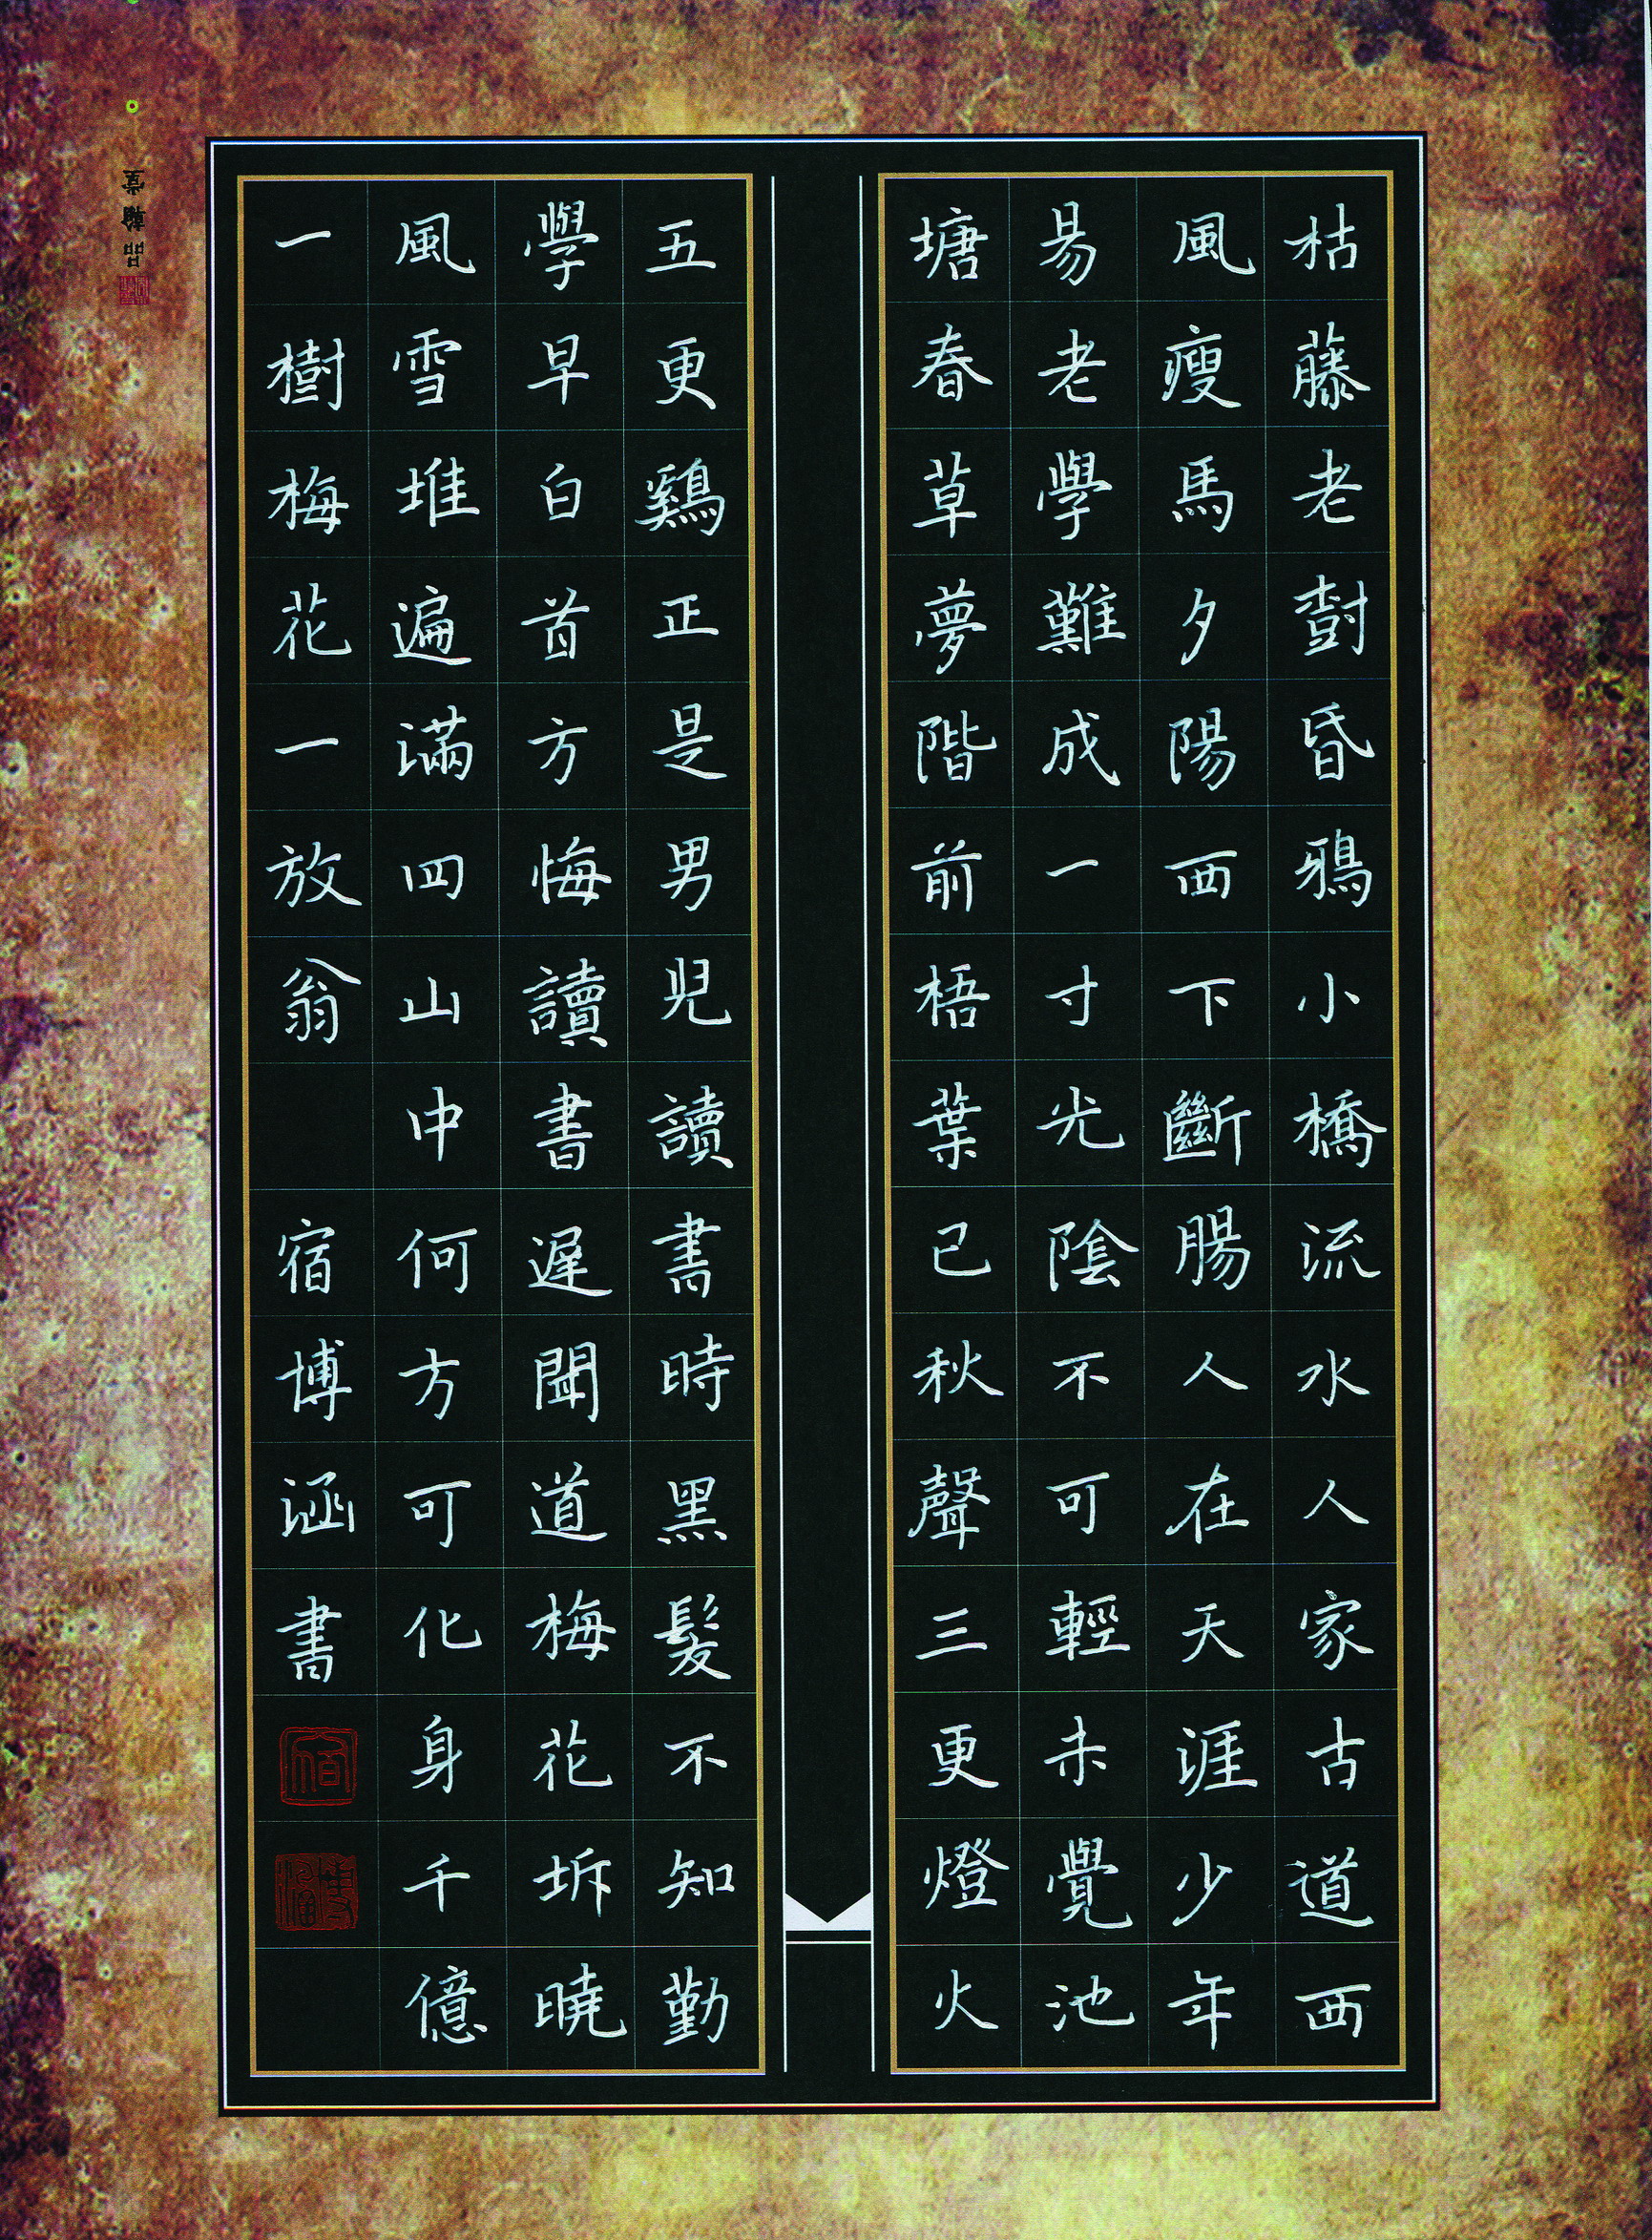 枯藤老樹昏鴉小橋流水人家古道西
風瘦馬夕陽西下斷腸人在天涯少年
易老學難成一寸光陰不可輕未覺池
塘春草夢階前梧葉已秋聲三更燈火
五更鷄正是男兒讀書時黑髮不知勤
學早白首方悔讀書遲聞道梅花坼曉
風雪堆遍滿四山中何方可化身千億
一樹梅花一放翁 宿博涵書
宿
博涵
品翰堂